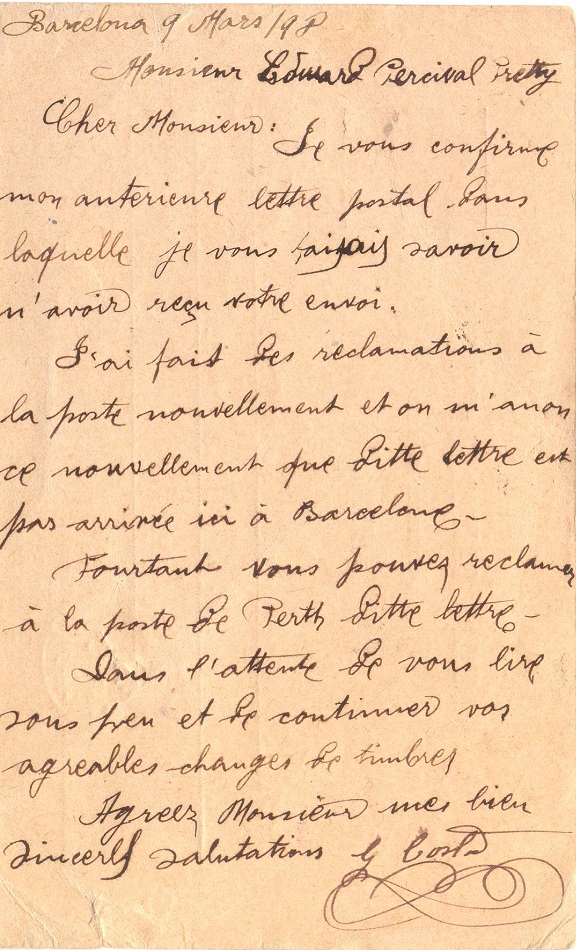 Barcelona 9 Mars/98
Monsieur Edward Percival Pretty
Cher Monsieur:
Je vous confirme
mon anterieure lettre postal dans
laquelle je vous faisais savoir
n'avoir reçu votre envoi.
J'ai fait des réclamations à
la poste nouvellement et on m'anon
ce nouvellement que ditte lettre est
pas arrivée ici à Barcelone -
Pourtant vous pouvez reclamer
à la poste de Perth ditte lettre -
Dans l'attente de vous lire
sous peu et de continuer vos
agreables changes de timbres
Agreez Monsieur mes bien
sincerès salutations G Costa